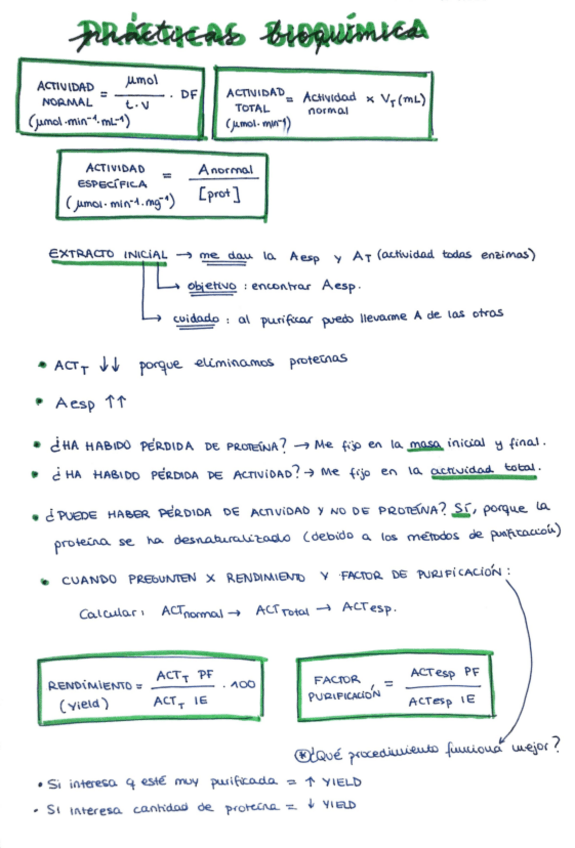 PRÁCTICAS BIOQUÍMICA
prácticas bioquímica
ACTIVIDAD NORMAL = μmol / t.v . DF
(μmol.min⁻¹.mL⁻¹)
ACTIVIDAD TOTAL = Actividad normal x V_T (mL)
(μmol.min⁻¹)
ACTIVIDAD ESPECÍFICA = Anormal / [prot]
(μmol.min⁻¹.mg⁻¹)
EXTRACTO INICIAL → me dan la Aesp y A_T (actividad todas enzimas)
objetivo : encontrar Aesp.
cuidado : al purificar puedo llevarme A de las otras
• ACT_T ↓↓ porque eliminamos proteínas
• Aesp ↑↑
• ¿HA HABIDO PÉRDIDA DE PROTEÍNA? → Me fijo en la masa inicial y final.
• ¿HA HABIDO PÉRDIDA DE ACTIVIDAD? → Me fijo en la actividad total.
• ¿PUEDE HABER PÉRDIDA DE ACTIVIDAD Y NO DE PROTEÍNA? SÍ, porque la
proteína se ha desnaturalizado (debido a los métodos de purificación)
• CUANDO PREGUNTEN X RENDIMIENTO Y FACTOR DE PURIFICACIÓN:
Calcular: ACTnormal → ACTTotal → ACTesp.
RENDIMIENTO (Yield) = ACT_T PF / ACT_T IE . 100
FACTOR PURIFICACIÓN = ACTesp PF / ACTesp IE
* ¿Qué procedimiento funciona mejor?
• Si interesa q esté muy purificada = ↑ YIELD
• Si interesa cantidad de proteína = ↓ YIELD